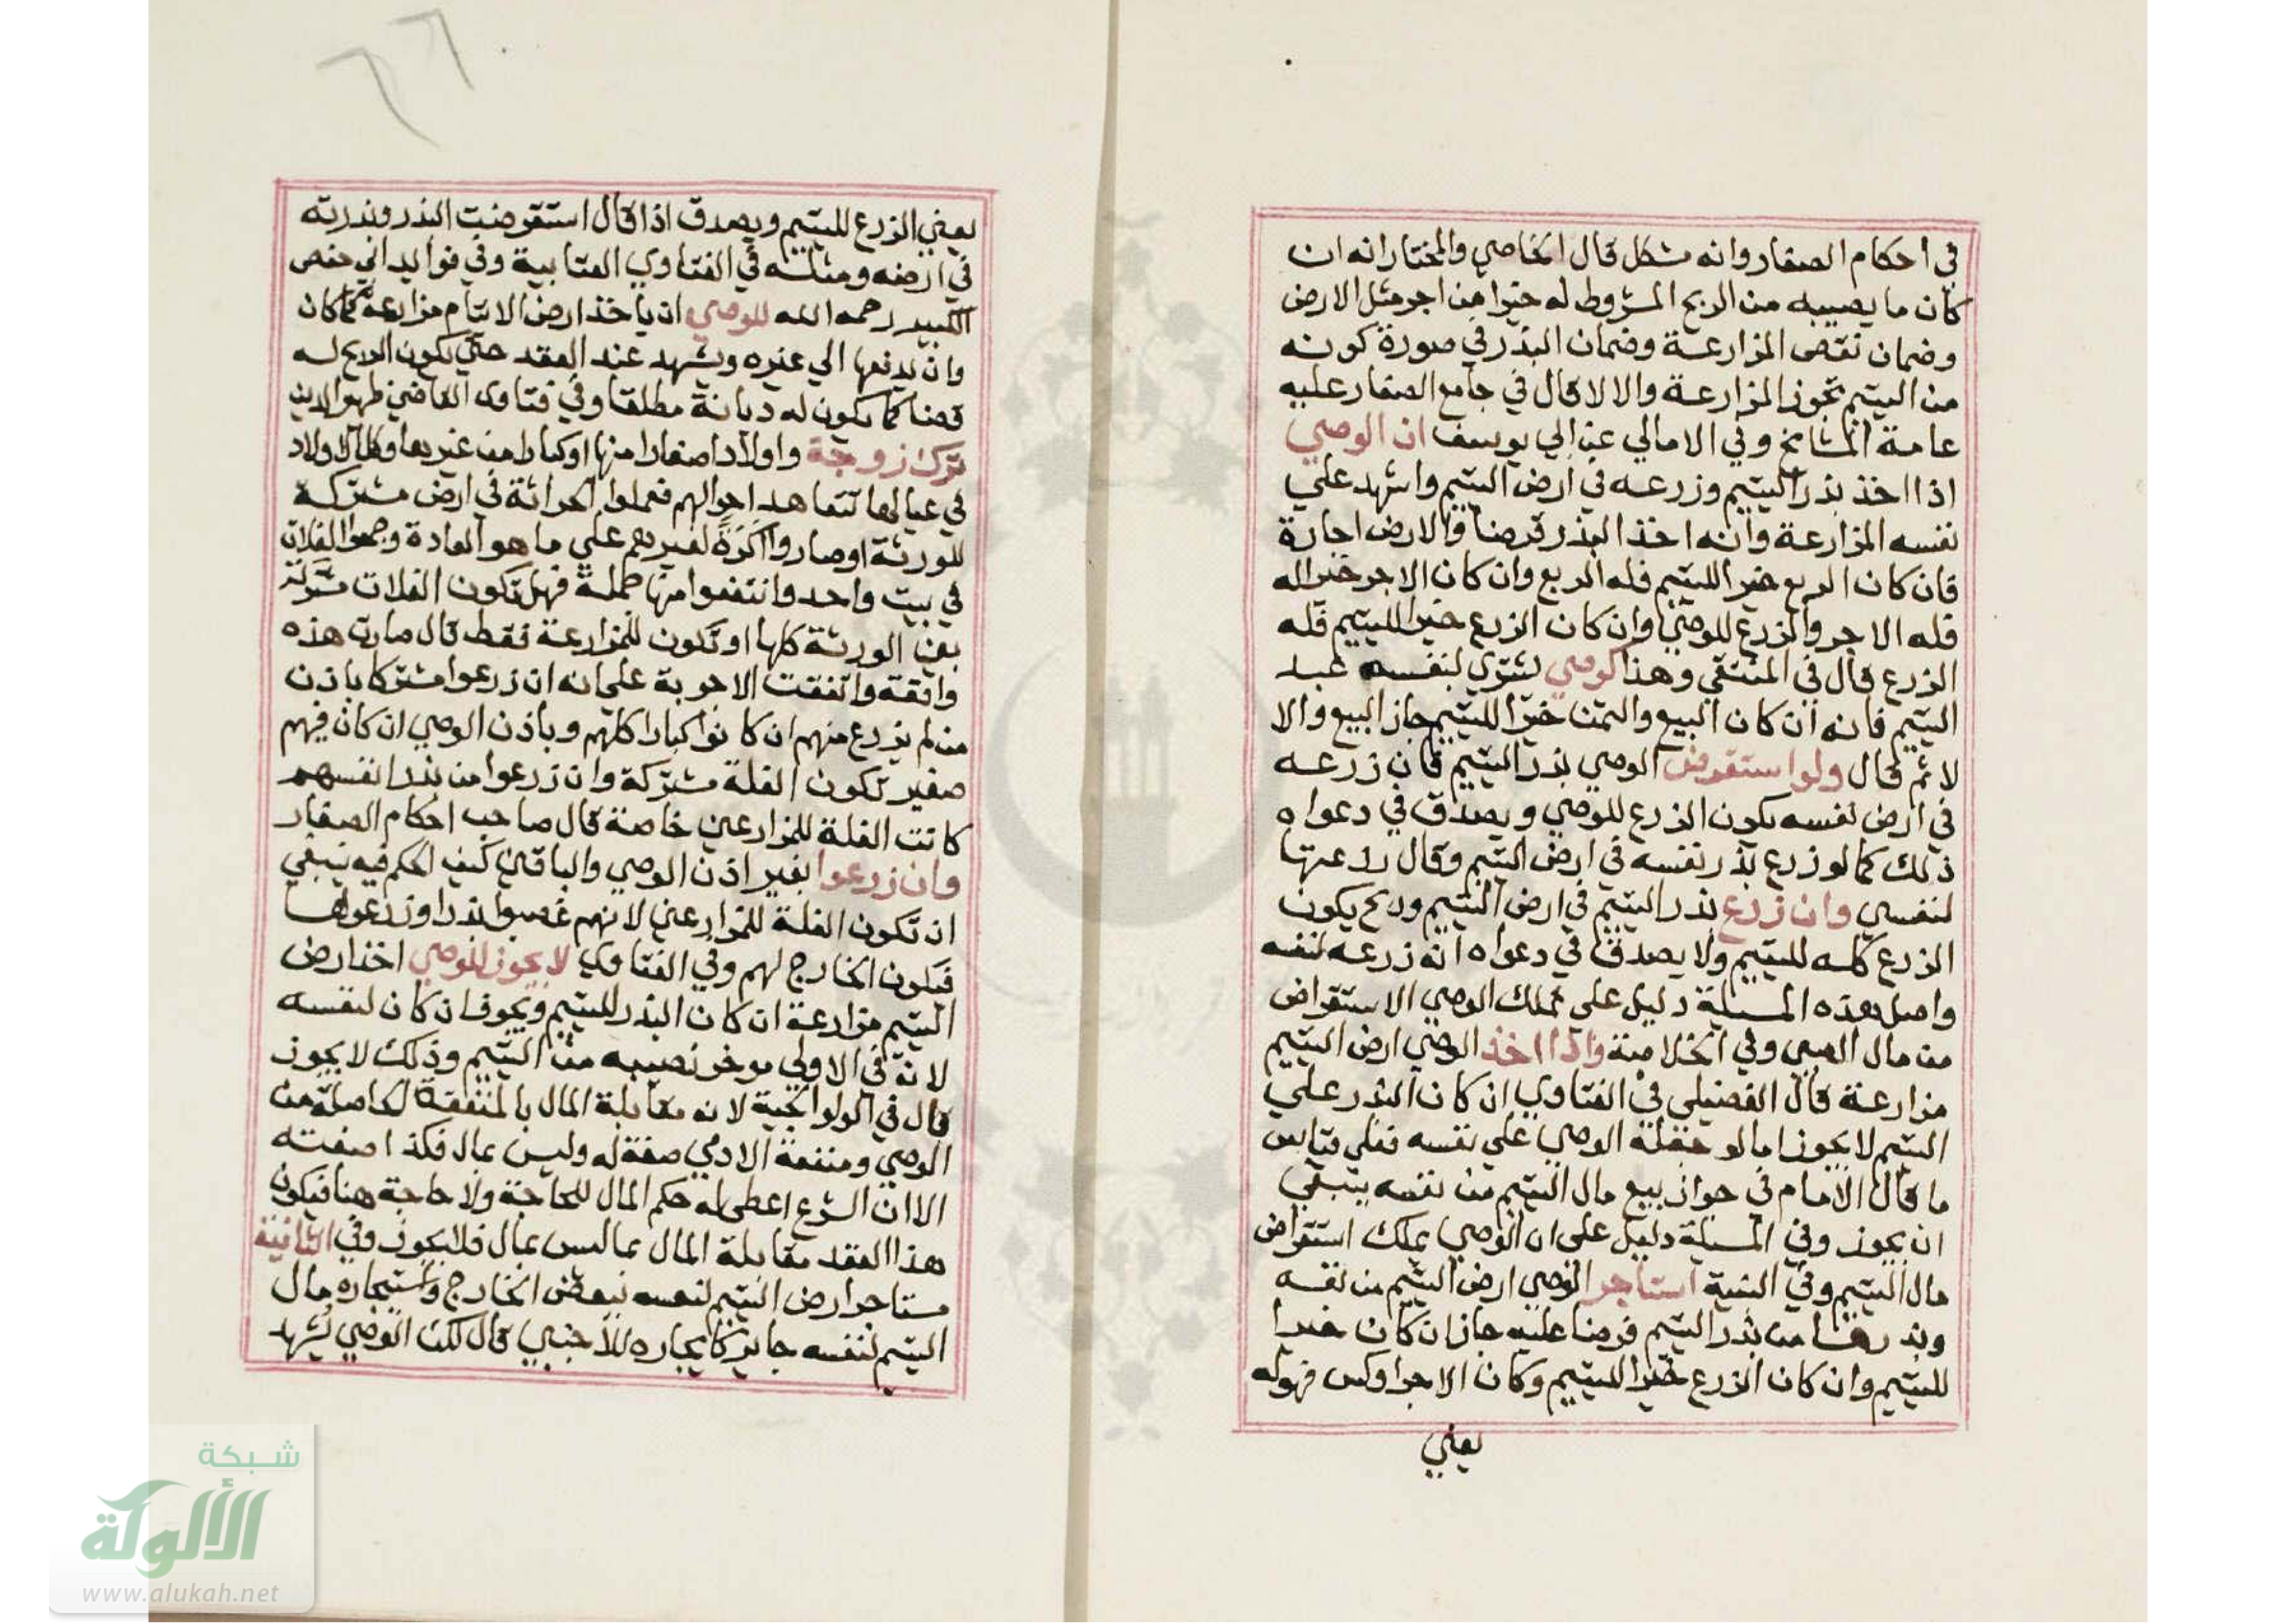 في احكام الصغار وانه مشكل قال الخاصي والمختار انه ان
كان ما يصيبه من الربح المشروط له خيرا من اجر مثل الارض
وضمان نقص المزارعة وضمان البذر في صورة كونه
من اليتيم تجوز المزارعة والا لا قال في جامع الصغار عليه
عامة المشايخ وفي الامالي عن ابي يوسف ان الوصي
اذا اخذ بذر اليتيم وزرعه في ارض اليتيم واشهد علي
نفسه المزارعة وانه اخذ البذر قرضا والارض اجارة
فان كان الربع خيرا لليتيم فله الربع وان كان الاجر خيرا له
فله الاجر والزرع للوصي وان كان الزرع خيرا لليتيم فله
الزرع قال في المنتقي وهذا كوصي يشتري لنفسه عبد
اليتيم فانه ان كان البيع والثمن خيرا لليتيم جاز البيع والا
لا ثم قال ولو استقرض الوصي بذر اليتيم فان زرعه
في ارض نفسه يكون الزرع للوصي ويصدق في دعواه
ذلك كما لو زرع بذر نفسه في ارض اليتيم وقال زرعتها
لنفسي وان زرع بذر اليتيم في ارض اليتيم وربح يكون
الزرع كله لليتيم ولا يصدق في دعواه انه زرعه لنفسه
واصل هذه المسيلة دليل علي تملك الوصي الاستقراض
من مال الصبي وفي الخلاصة واذا اخذ الوصي ارض اليتيم
مزارعة قال الفضيلي في الفتاوي ان كان البذر علي
اليتيم لا يجوز اما لو جعله الوصي علي نفسه فعلي قياس
ما قال الامام في جواز بيع مال اليتيم من نفسه ينبغي
ان يجوز وفي المسيلة دليل علي ان الوصي يملك استقراض
مال اليتيم وفي المنية استاجر الوصي ارض اليتيم من نفسه
وبذرها من بذر اليتيم قرضا عليه جاز ان كان خيرا
لليتيم وان كان الزرع خيرا لليتيم وكان الاجر اوكس فهو له
يعني
٦٦
يعني الزرع لليتيم ويصدق اذا قال استقرضت البذر وبذرته
في ارضه ومثله في الفتاوي العتابية وفي فوايد ابي حفص
الكبير رحمه الله للوصي ان ياخذ ارض الايتام مزارعة كما كان
وان يدفعها الي غيره ويشهد عند العقد حتي يكون الربح له
قضا كما يكون له ديانة مطلقا وفي فتاوي القاضي ظهير الدين
ترك زوجة واولادا صغارا منها او كبارا من غيرها وكل الاولاد
في عيالها تتعاهد احوالهم فعملوا الحراثة في ارض مشتركة
للورثة او صاروا اكرة لغيرهم علي ما هو العادة وجمعوا الغلات
في بيت واحد وانتفعوا منها جملة فهل تكون الغلات مشتركة
بين الورثة كلها او تكون للمزارعة فقط قال صارت هذه
واقعة واتفقت الاجوبة علي انه ان زرعوا مشتركا باذن
من لم يزرع منهم ان كانوا كبارا كلهم وباذن الوصي ان كان فيهم
صغير تكون الغلة مشتركة وان زرعوا من بذر انفسهم
كانت الغلة للمزارعين خاصة قال صاحب احكام الصغار
وان زرعوا بغير اذن الوصي والباقين كيف الحكم فيه ينبغي
ان تكون الغلة للمزارعين لانهم غصبوا بذرا وزرعوها
فيكون الخارج لهم وفي الفتاوي لا يجوز للوصي اخذ ارض
اليتيم مزارعة ان كان البذر لليتيم ويجوز ان كان لنفسه
لانه في الاولي موجر نصيبه من اليتيم وذلك لا يجوز
قال في الولوالجية لانه مقابلة المال بالمنفعة الحاصلة من
الوصي ومنفعة الادمي صفة له وليس بمال فكذا صفته
الا ان الشرع اعطي له حكم المال للحاجة ولا حاجة هنا فيكون
هذا العقد مقابلة المال بما ليس بمال فلا يجوز وفي الثانية
مستاجر ارض اليتيم لنفسه ببعض الخارج واستيجاره مال
اليتيم لنفسه جايز كايجاره للاجنبي قال لكن الوصي يشهد
شبكة
الألوكة
www.alukah.net